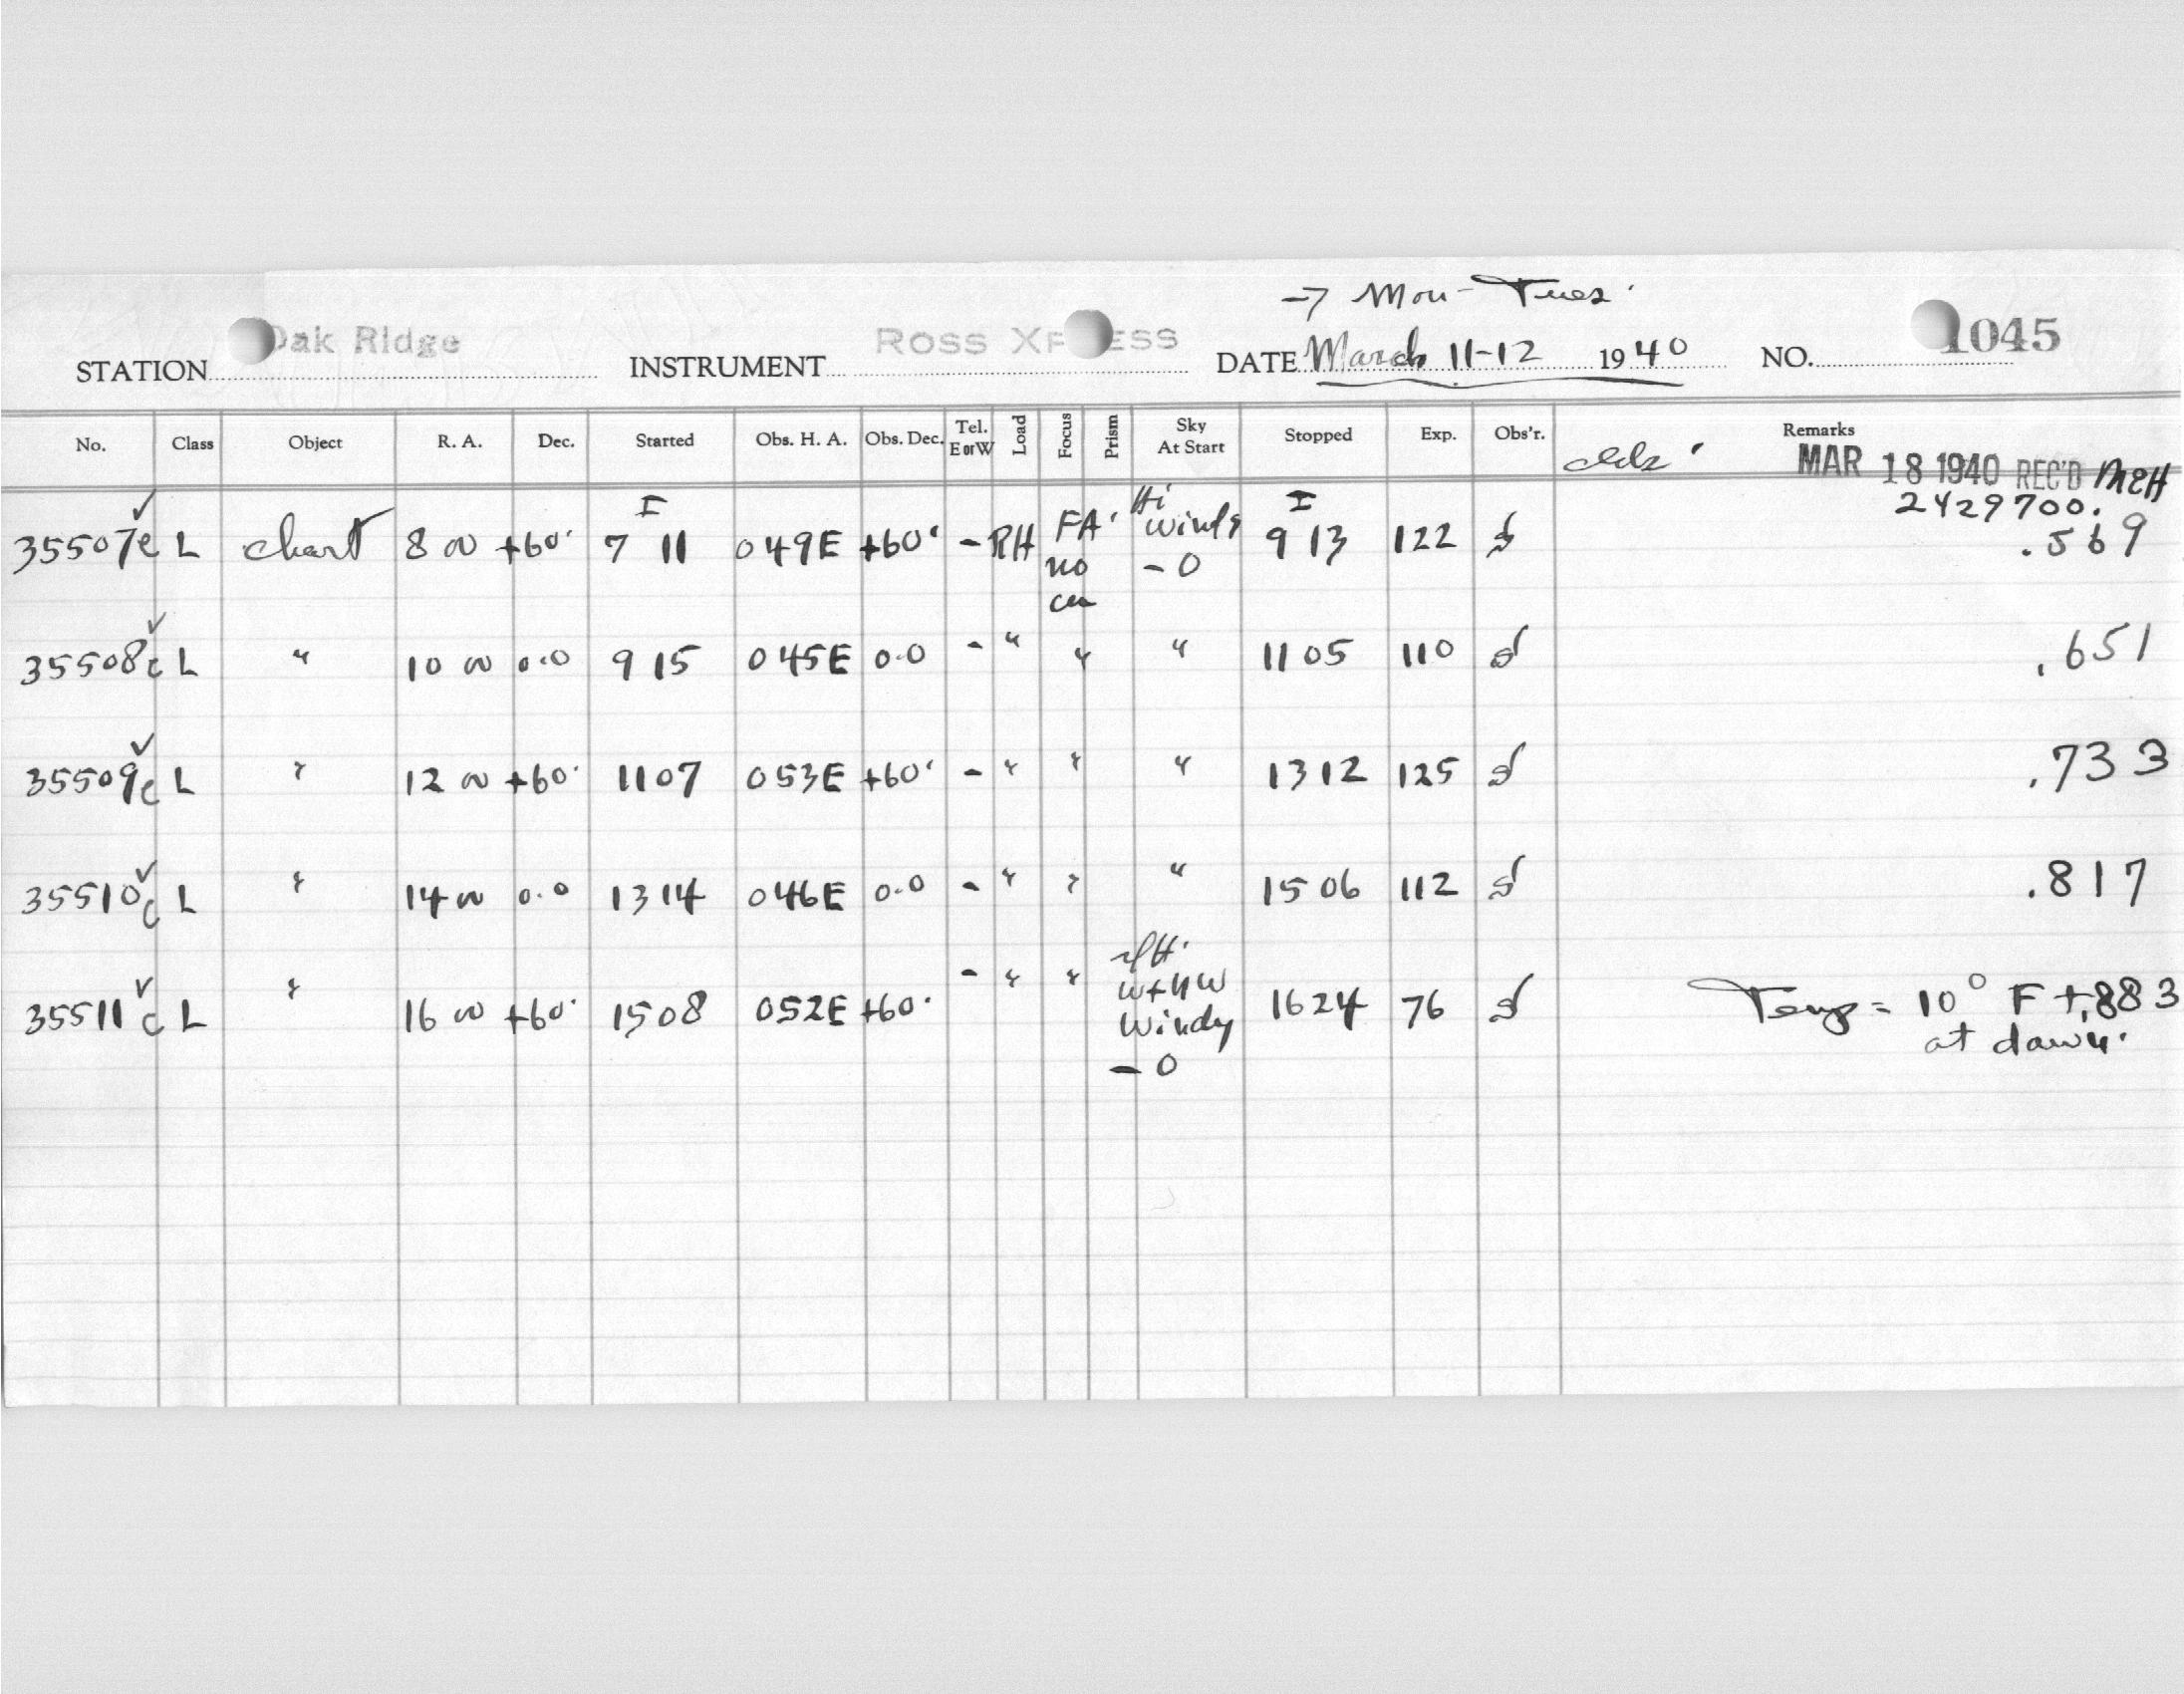 → Mon-Tues.
STATION Oak Ridge INSTRUMENT ROSS XPRESS DATE March 11-12 1940 NO. 1045
No. Class Object R. A. Dec. Started Obs. H. A. Obs. Dec. Tel. E or W Load Focus Prism Sky At Start Stopped Exp. Obs'r. Remarks
MAR 18 1940 REC'D MEH
2429700.
I Hi I
35507c L chart 8 00 +60· 7 11 049E +60· - RH FA· windy 9 13 122 .569
no - 0
35508c L " 10 00 0.0 9 15 045E 0.0 - " " " 11 05 110 .651
35509c L " 12 00 +60· 11 07 053E +60· - " " " 13 12 125 .733
35510c L " 14 00 0.0 13 14 046E 0.0 - " " " 15 06 112 .817
35511c L " 16 00 +60· 15 08 052E +60· - " " W+NW 16 24 76 Temp = 10° F + .883
Windy at dawn.
- 0